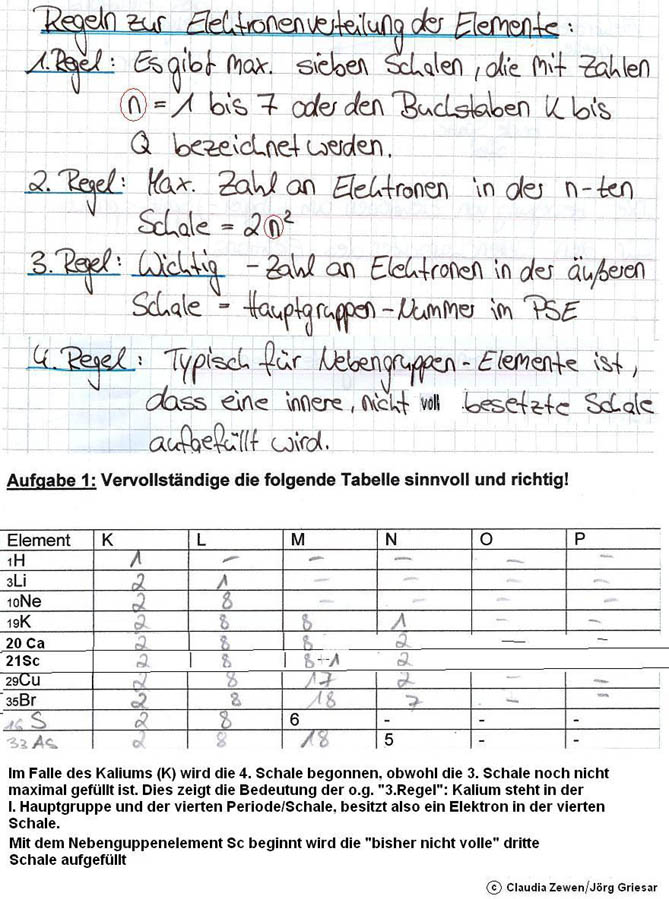 Regeln zur Elektronenverteilung der Elemente:
1. Regel: Es gibt max. sieben Schalen, die mit Zahlen
n = 1 bis 7 oder den Buchstaben K bis
Q bezeichnet werden.
2. Regel: Max. Zahl an Elektronen in der n-ten
Schale = 2n²
3. Regel: Wichtig - Zahl an Elektronen in der äußeren
Schale = Hauptgruppen-Nummer im PSE
4. Regel: Typisch für Nebengruppen-Elemente ist,
dass eine innere, nicht voll besetzte Schale
aufgefüllt wird.
Aufgabe 1: Vervollständige die folgende Tabelle sinnvoll und richtig!
Element K L M N O P
1H 1 - - - - -
3Li 2 1 - - - -
10Ne 2 8 - - - -
19K 2 8 8 1 - -
20 Ca 2 8 8 2 - -
21Sc 2 8 8+1 2
29Cu 2 8 17 2 - -
35Br 2 8 18 7 - -
16 S 2 8 6 - - -
33 AS 2 8 18 5 - -
Im Falle des Kaliums (K) wird die 4. Schale begonnen, obwohl die 3. Schale noch nicht
maximal gefüllt ist. Dies zeigt die Bedeutung der o.g. "3.Regel": Kalium steht in der
I. Hauptgruppe und der vierten Periode/Schale, besitzt also ein Elektron in der vierten
Schale.
Mit dem Nebenguppenelement Sc beginnt wird die "bisher nicht volle" dritte
Schale aufgefüllt
© Claudia Zewen/Jörg Griesar